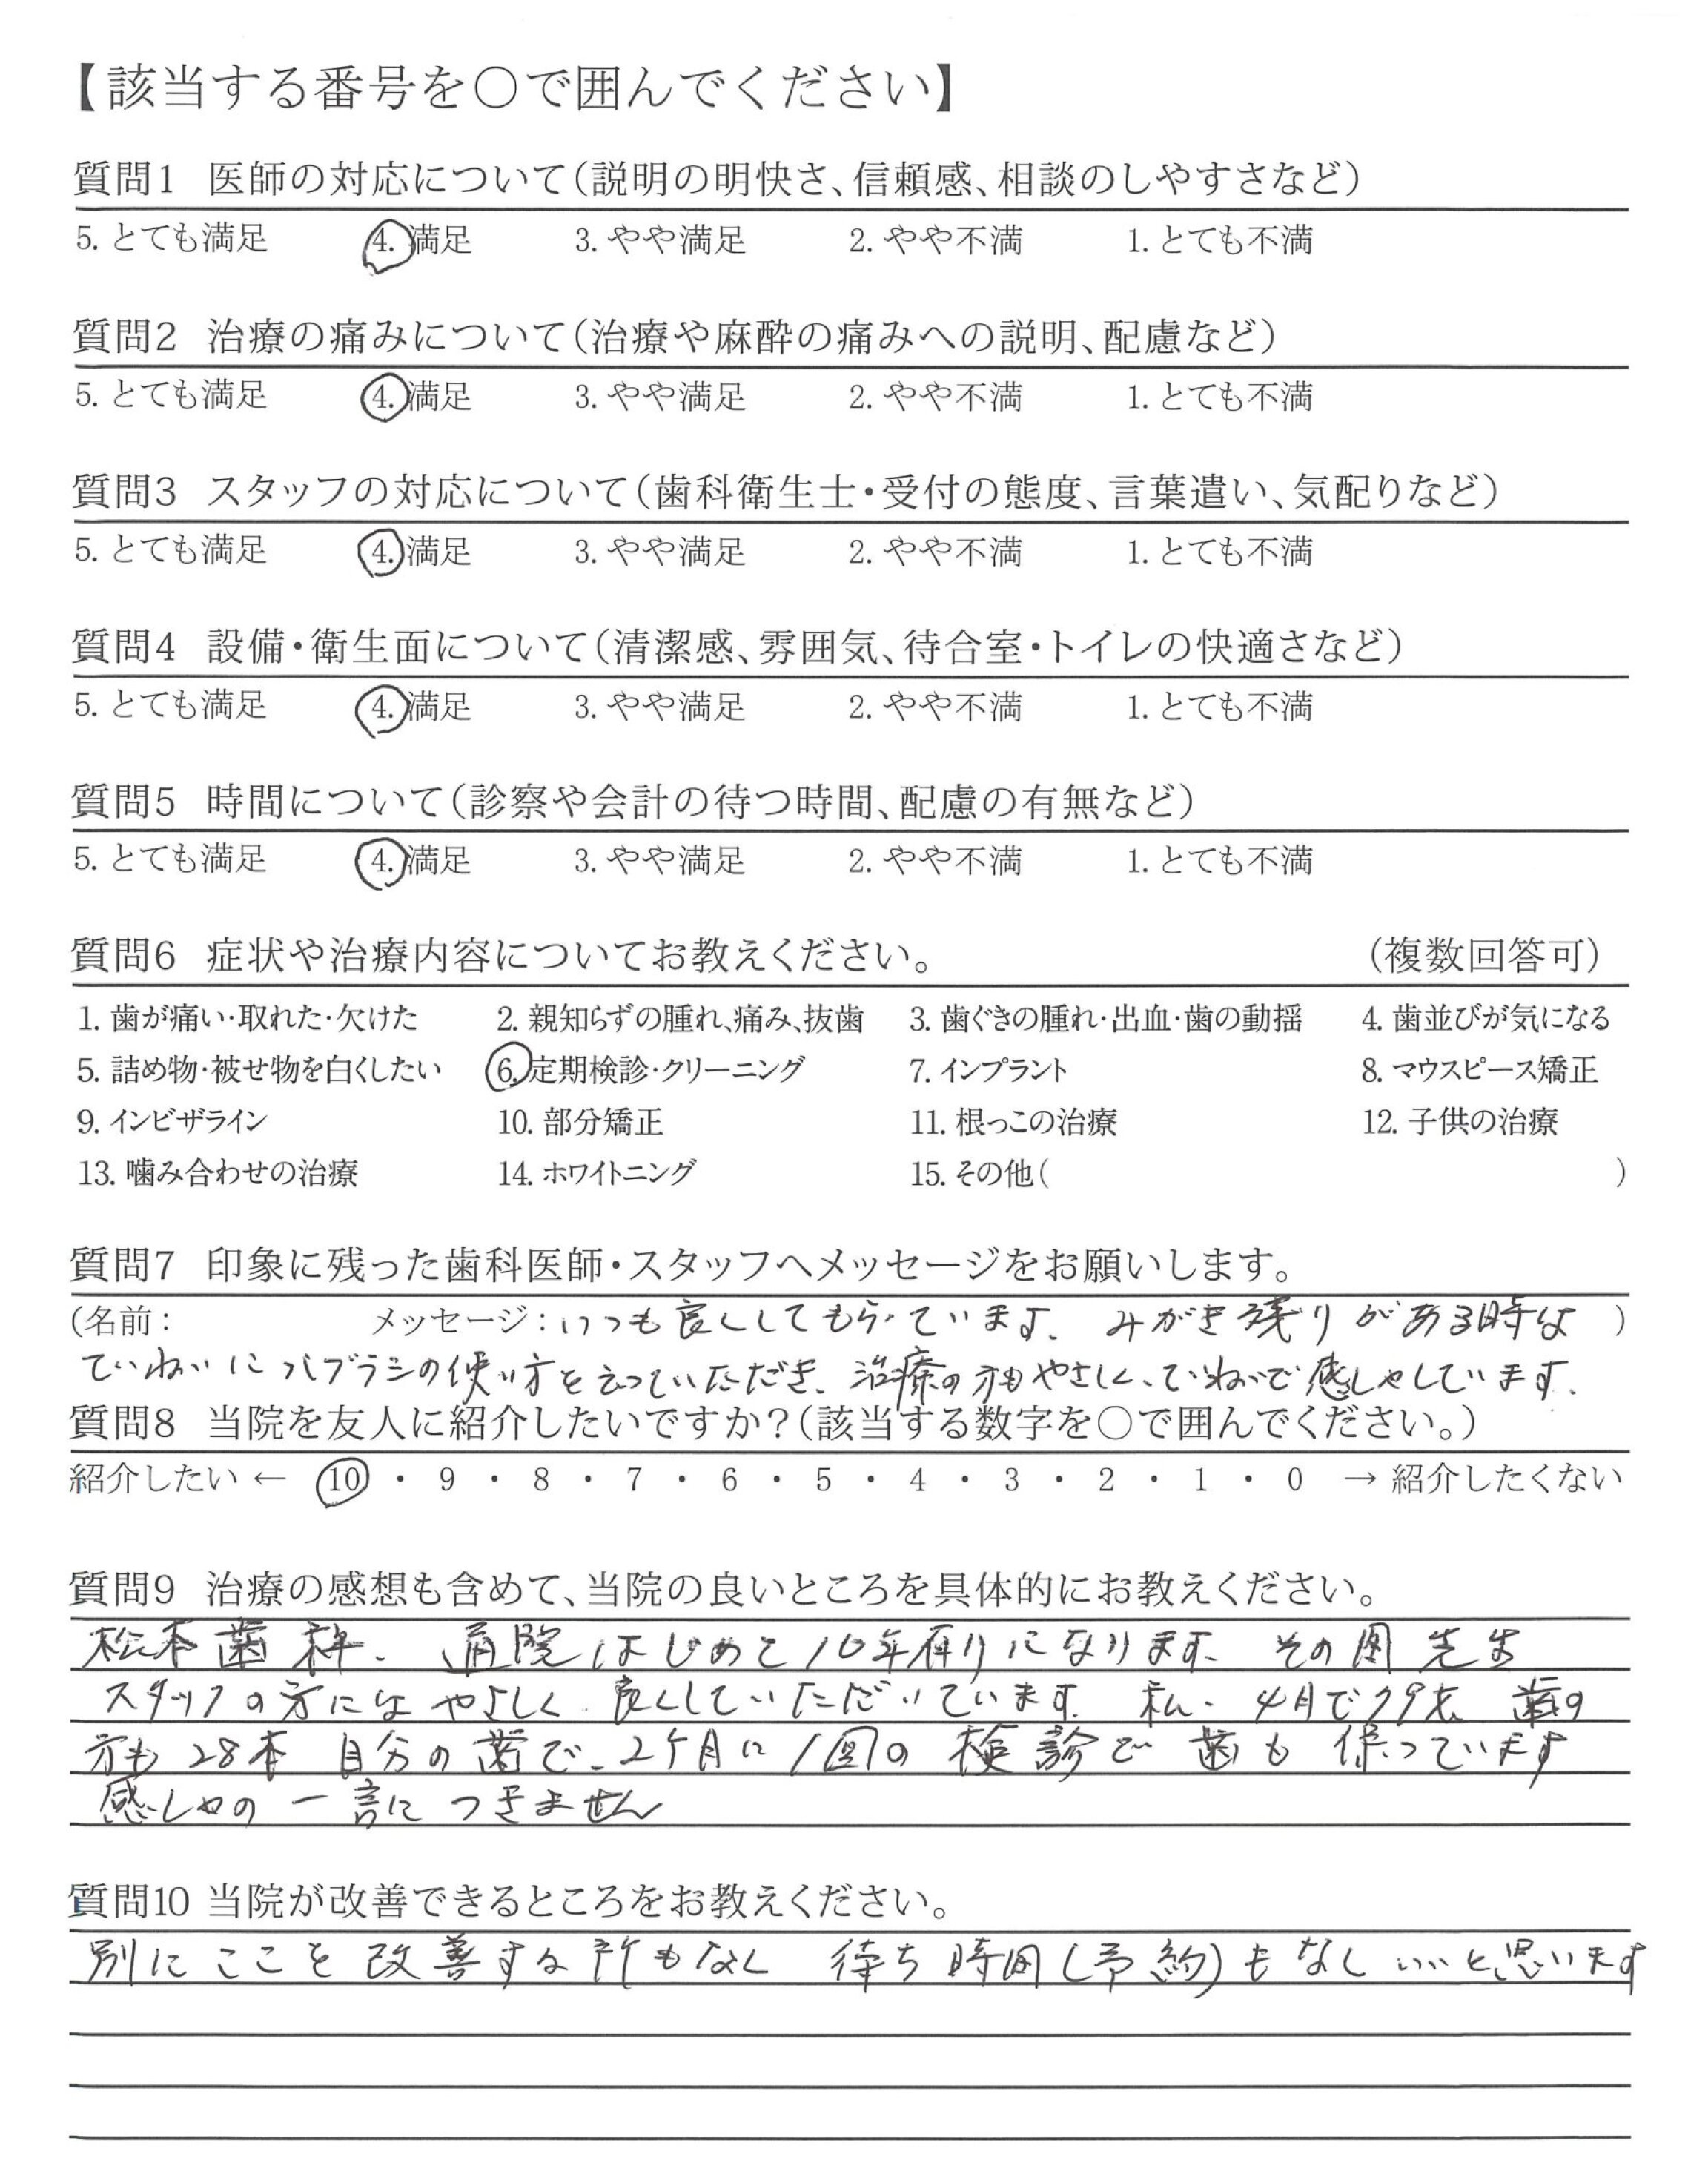 【該当する番号を○で囲んでください】
質問1 医師の対応について(説明の明快さ、信頼感、相談のしやすさなど)
5. とても満足 4. 満足 3. やや満足 2. やや不満 1. とても不満
質問2 治療の痛みについて(治療や麻酔の痛みへの説明、配慮など)
5. とても満足 4. 満足 3. やや満足 2. やや不満 1. とても不満
質問3 スタッフの対応について(歯科衛生士・受付の態度、言葉遣い、気配りなど)
5. とても満足 4. 満足 3. やや満足 2. やや不満 1. とても不満
質問4 設備・衛生面について(清潔感、雰囲気、待合室・トイレの快適さなど)
5. とても満足 4. 満足 3. やや満足 2. やや不満 1. とても不満
質問5 時間について(診察や会計の待つ時間、配慮の有無など)
5. とても満足 4. 満足 3. やや満足 2. やや不満 1. とても不満
質問6 症状や治療内容についてお教えください。 (複数回答可)
1. 歯が痛い・取れた・欠けた 2. 親知らずの腫れ、痛み、抜歯 3. 歯ぐきの腫れ・出血・歯の動揺 4. 歯並びが気になる
5. 詰め物・被せ物を白くしたい 6. 定期検診・クリーニング 7. インプラント 8. マウスピース矯正
9. インビザライン 10. 部分矯正 11. 根っこの治療 12. 子供の治療
13. 噛み合わせの治療 14. ホワイトニング 15. その他( )
質問7 印象に残った歯科医師・スタッフへメッセージをお願いします。
(名前: メッセージ:いつも良くしてもらっています。みがき残りがある時は )
ていねいにハブラシの使い方を言っていただき、治療の方もやさしく、ていねいで感しゃしています。
質問8 当院を友人に紹介したいですか?(該当する数字を○で囲んでください。)
紹介したい ← 10 ・ 9 ・ 8 ・ 7 ・ 6 ・ 5 ・ 4 ・ 3 ・ 2 ・ 1 ・ 0 → 紹介したくない
質問9 治療の感想も含めて、当院の良いところを具体的にお教えください。
松本歯科、通院はじめて10年有りになります。その間先生
スタッフの方にはやさしく良くしていただいています。私、4月で79才、歯の
方も28本自分の歯で、2ケ月に1回の検診で歯も保っています
感しゃの一言につきません
質問10 当院が改善できるところをお教えください。
別にここを改善する所もなく 待ち時間(予約)もなしいいと思います